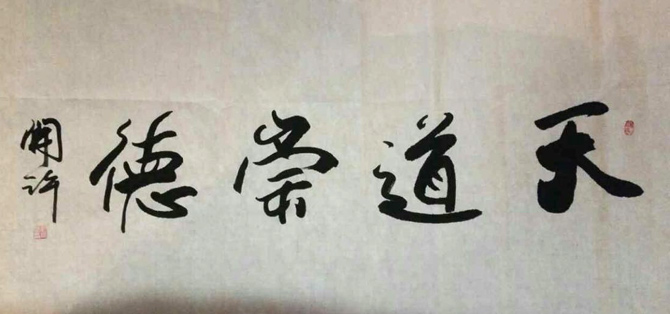 天道崇德
開許